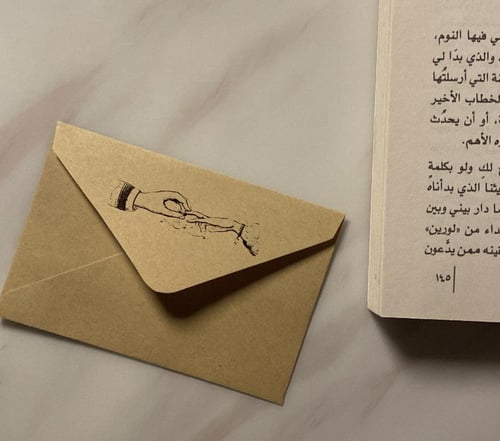 ي فيها النوم،
والذي بدَا لي
ة التي أرسلتُها
لخطاب الأخير
، أو أن يحدُث
ه الأهم.
لكِ ولو بكلمة
يثنا الذي بدأناه
ا دار بيني وبين
داء من «لورين»
قينه ممن يدَّعون
١٤٥